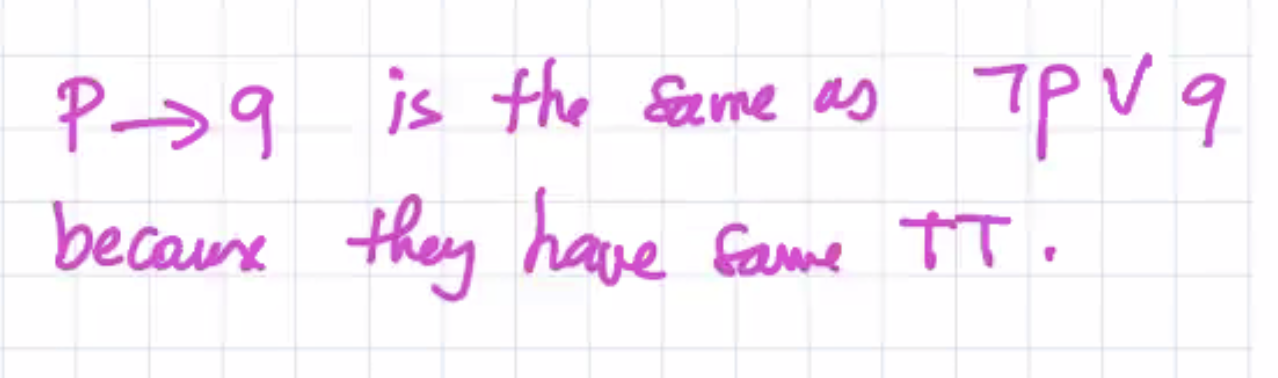 P → q is the same as ¬p ∨ q
because they have same TT.